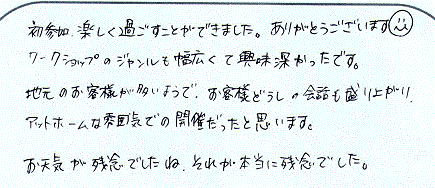 初参加、楽しく過ごすことができました。ありがとうございます
ワークショップのジャンルも幅広くて興味深かったです。
地元のお客様が多いようで、お客様どうしの会話も盛り上がり、
アットホームな雰囲気での開催だったと思います。
お天気が残念でしたね、それが本当に残念でした。